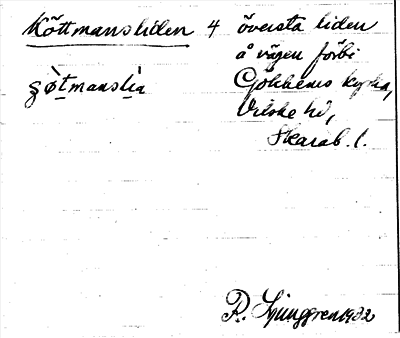 Köttmansliden 4 översta liden
å vägen förbi
Gökhems kyrka,
Vilske hd,
Skarab. l.
şø̀t̲manslì̲a
R. Ljunggren 1932